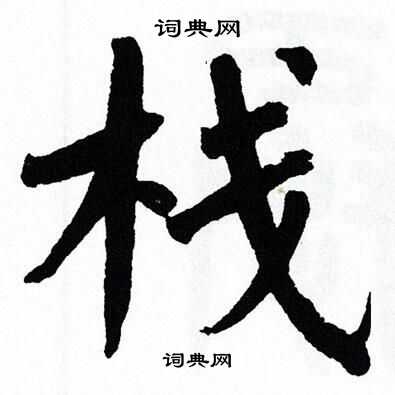 词典网
栈
词典网